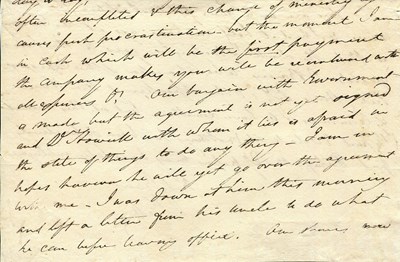 often & this change of ministry
causes procrastination but the moment I am
in cash which will be the first payment
the Company makes you will be reimbursed with
all expences Our bargain with Government
is made but the agreement is not yet signed
and with whom it lies is afraid in
the state of things to do any thing – I am in
hopes however he will yet go over the agreement
with me – I was down at him this morning
and left a letter from his Uncle to do what
he can before leaving office. Our Shares now